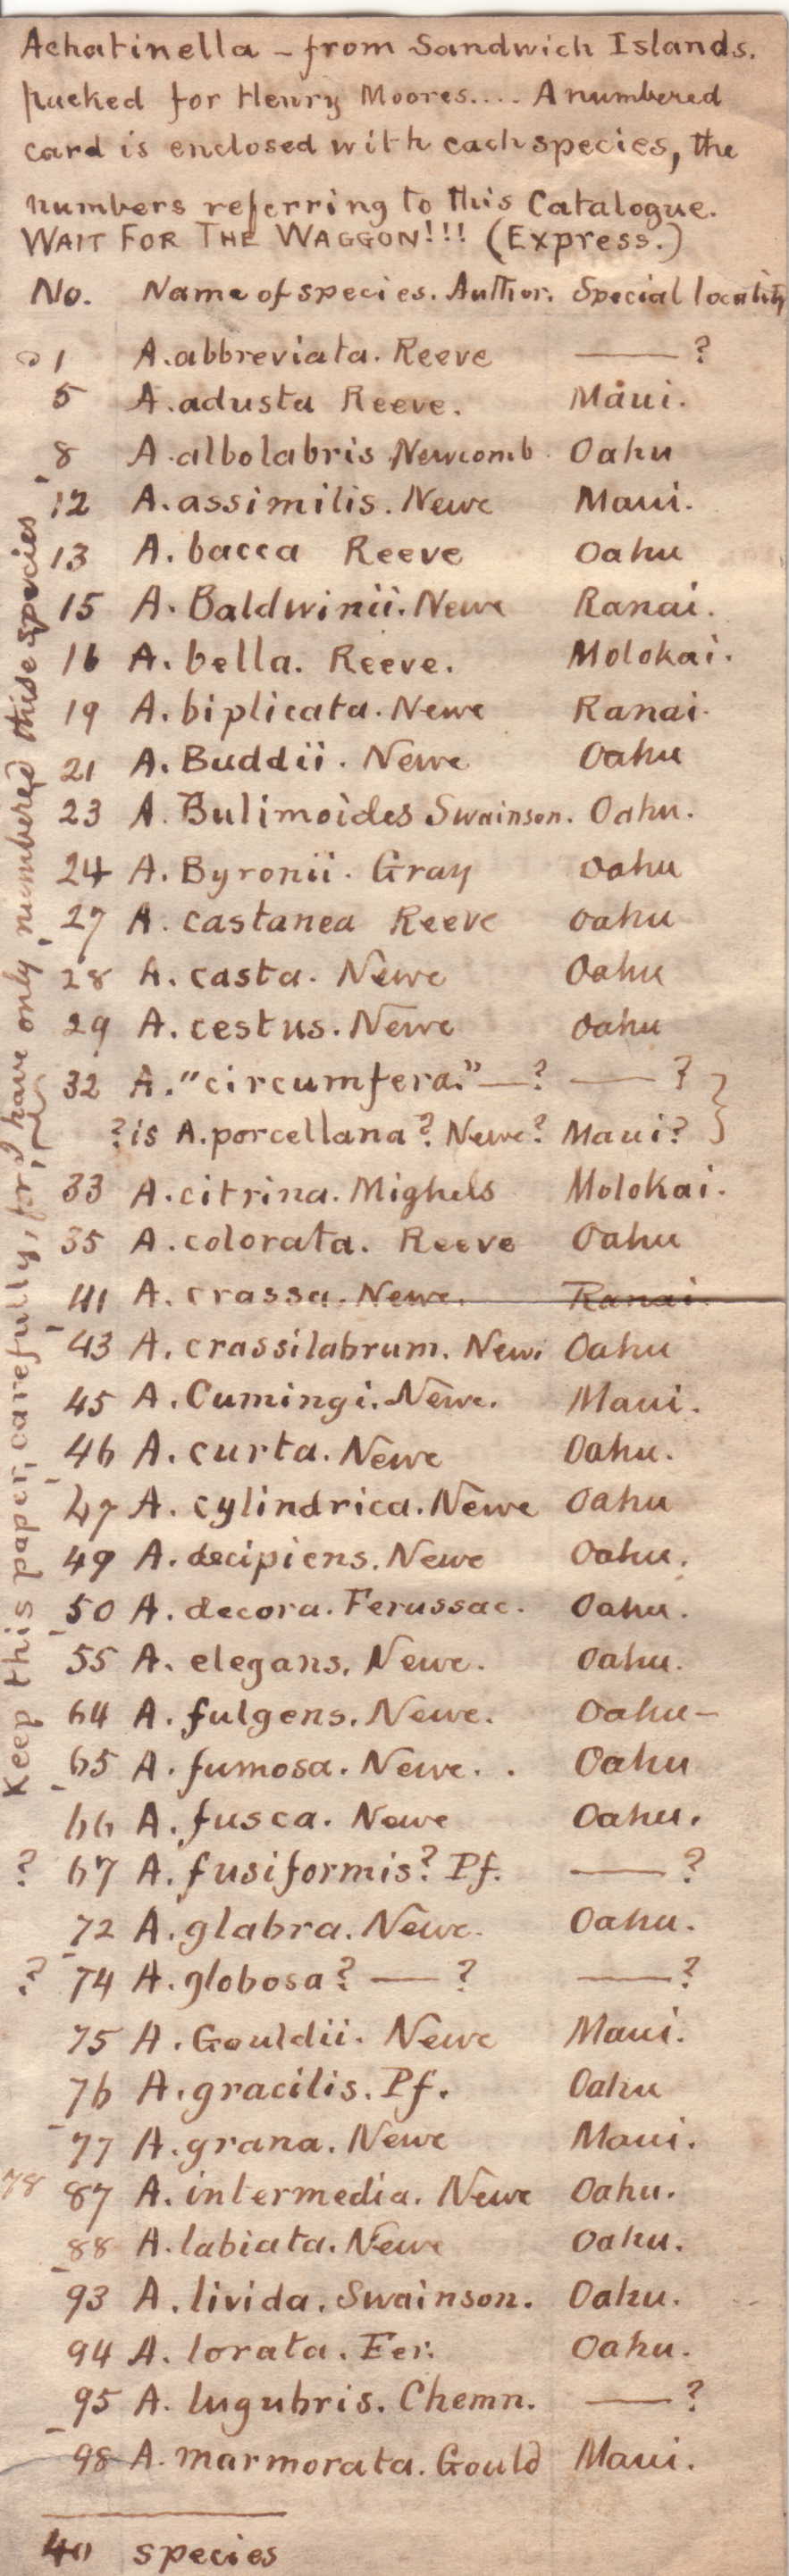 Achatinella – from Sandwich Islands.
packed for Henry Moores.... A numbered
card is enclosed with each species, the
numbers referring to this Catalogue.
WAIT FOR THE WAGGON!!! (Express.)
No. Name of species. Author. Special locality
1 A. abbreviata. Reeve —— ?
5 A. adusta Reeve. Maui.
8 A. albolabris Newcomb. Oahu
12 A. assimilis. Newc Maui.
13 A. bacca Reeve Oahu
15 A. Baldwinii. Newc Ranai.
16 A. bella. Reeve. Molokai.
19 A. biplicata. Newc Ranai.
21 A. Buddii. Newc Oahu
23 A. Bulimoides Swainson. Oahu.
24 A. Byronii. Gray Oahu
27 A. castanea Reeve Oahu
28 A. casta. Newc Oahu
29 A. cestus. Newc Oahu
32 A. "circumfera." — ? —— ?
? is A. porcellana? Newc? Maui?
33 A. citrina. Mighels Molokai.
35 A. colorata. Reeve Oahu
41 A. crassa. Newc. Ranai.
43 A. crassilabrum. Newc Oahu
45 A. Cumingi. Newc. Maui.
46 A. curta. Newc Oahu.
47 A. cylindrica. Newc Oahu
49 A. decipiens. Newc Oahu.
50 A. decora. Ferussac. Oahu.
55 A. elegans. Newc. Oahu.
64 A. fulgens. Newc. Oahu –
65 A. fumosa. Newc. . Oahu
66 A. fusca. Newc Oahu.
? 67 A. fusiformis? Pf. —— ?
72 A. glabra. Newc. Oahu.
? 74 A. globosa? — ? —— ?
75 A. Gouldii. Newc Maui.
76 A. gracilis. Pf. Oahu
77 A. grana. Newc Maui.
78 87 A. intermedia. Newc Oahu.
88 A. labiata. Newc Oahu.
93 A. livida. Swainson. Oahu.
94 A. lorata. Fer. Oahu.
95 A. lugubris. Chemn. —— ?
98 A. marmorata. Gould Maui.
40 species
Keep this paper, carefully, for I have only numbered these species